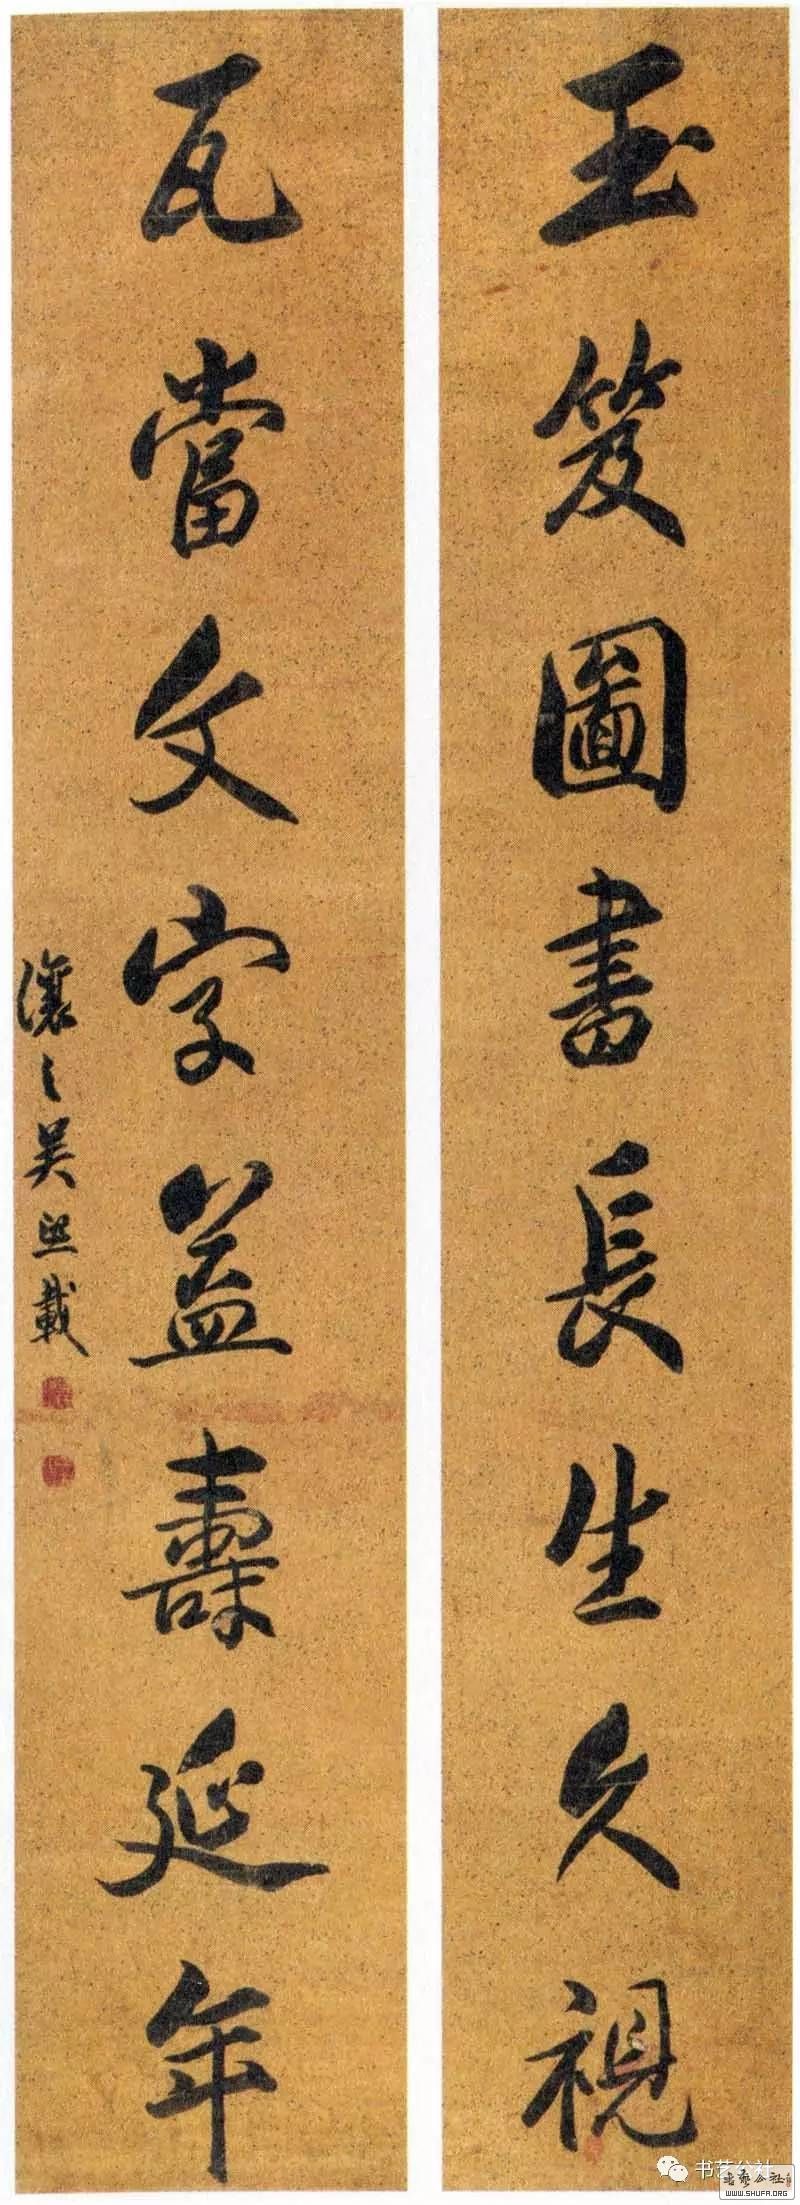 玉笈圖書長生久視
瓦當文字益壽延年
讓之吴熙載
书艺公社
书艺公社
WWW.SHUFA.ORG